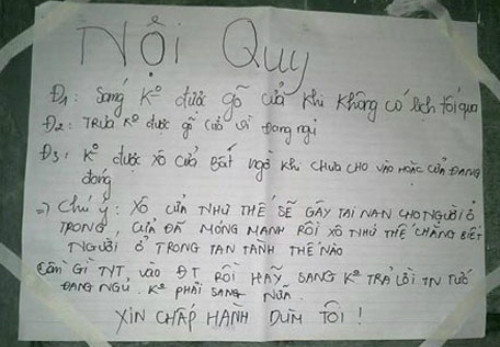 Nội Quy
Đ1: Sáng K° được gõ cửa khi không có lịch tối qua
Đ2: TRƯA K° được gõ cửa vì đang ngủ
Đ3: K° được xô cửa bất ngờ khi chưa cho vào hoặc cửa đang
đóng
=> Chú ý: XÔ CỬA NHƯ THẾ SẼ GÂY TAI NẠN CHO NGƯỜI Ở
TRONG, CỬA ĐÃ MỎNG MANH RỒI XÔ NHƯ THẾ CHẲNG BIẾT
NGƯỜI Ở TRONG TAN TÀNH THẾ NÀO
Cần GÌ TYT, vào ĐT RỒI HÃY SANG K° TRẢ LỜI TN TỨC
ĐANG NGỦ. K° PHẢI SANG NỮA.
XIN CHẤP HÀNH DÙM TÔI!